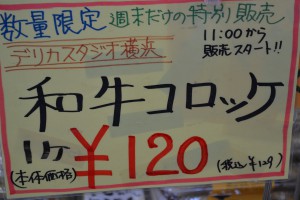 数量限定 週末だけの特別販売
デリカスタジオ横浜
11:00から
販売スタート!!
和牛コロッケ
1ケ ¥120
(本体価格) (税込¥129)